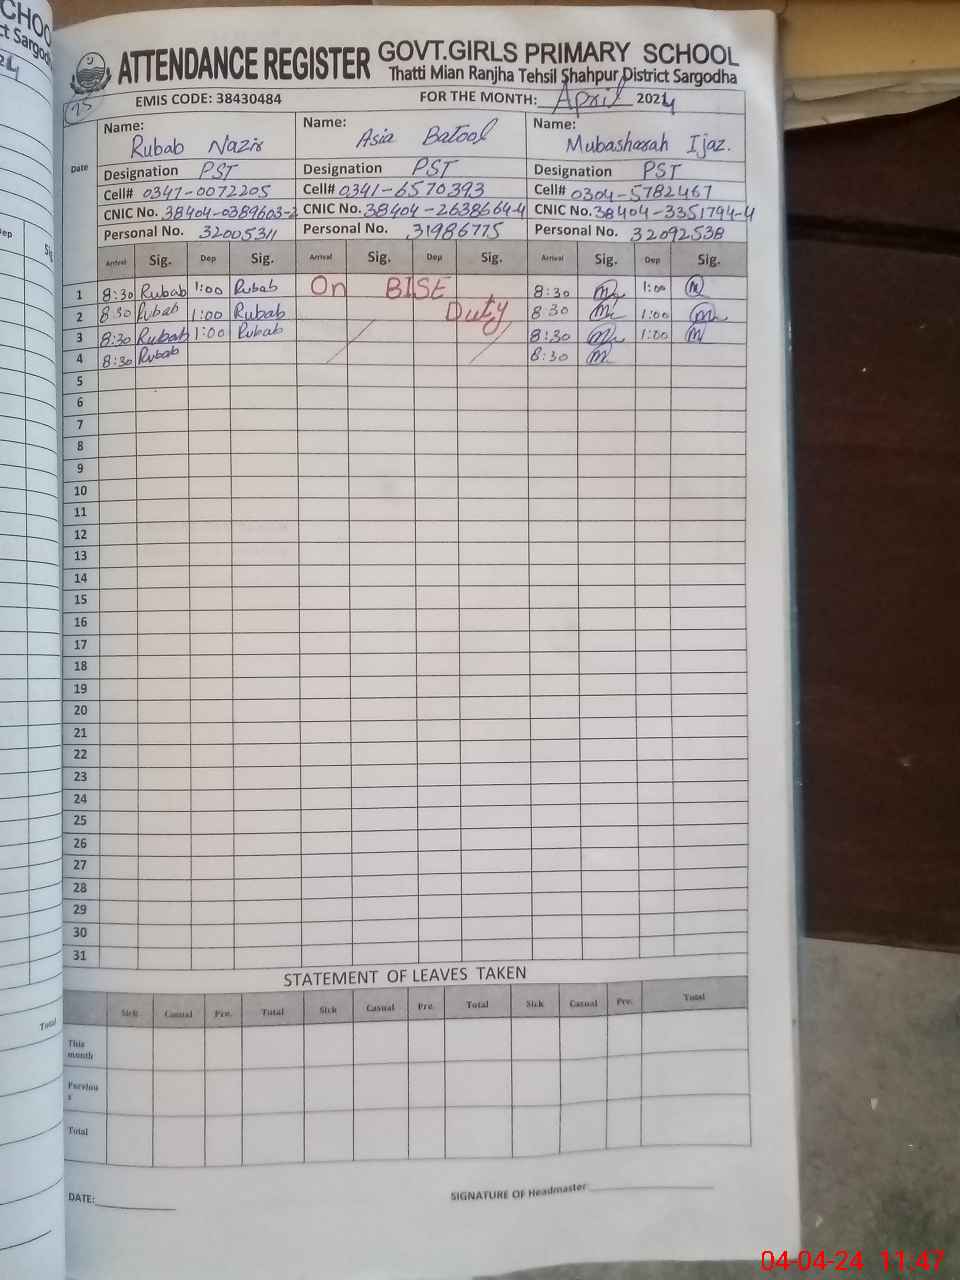 CHOO
ct Sargodh
24
ATTENDANCE REGISTER GOVT.GIRLS PRIMARY SCHOOL
Thatti Mian Ranjha Tehsil Shahpur District Sargodha
75
EMIS CODE: 38430484 FOR THE MONTH: April 2024
Date
Name: Rubab Nazir Name: Asia Batool Name: Mubasharah Ijaz.
Designation PST Designation PST Designation PST
Cell# 0347-0072205 Cell# 0341-6570393 Cell# 0304-5782467
CNIC No. 38404-0389603-2 CNIC No. 38404-2638664-4 CNIC No. 38404-3351794-4
Personal No. 32005311 Personal No. 31986775 Personal No. 32092538
Arrival Sig. Dep Sig. Arrival Sig. Dep Sig. Arrival Sig. Dep Sig.
1 8:30 Rubab 1:00 Rubab On BISE 8:30 1:00
2 8:30 Rubab 1:00 Rubab Duty 8 30 1:00
3 8:30 Rubab 1:00 Rubab 8:30 1:00
4 8:30 Rubab 8:30
5
6
7
8
9
10
11
12
13
14
15
16
17
18
19
20
21
22
23
24
25
26
27
28
29
30
31
STATEMENT OF LEAVES TAKEN
Sick Casual Pre. Total Sick Casual Pre. Total Sick Casual Pre. Total
This month
Previou s
Total
DATE: SIGNATURE OF Headmaster:
ep
Sig
Total
04-04-24 11:47